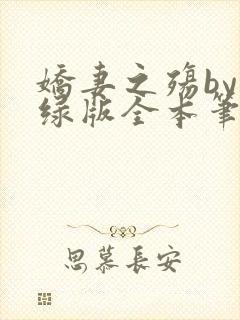 嬌妻之殤by
绿版全本筆
思慕長安